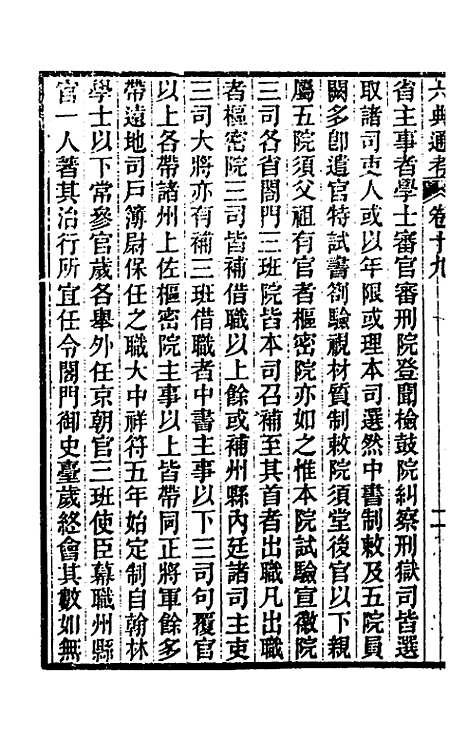 六典通考 卷十九
省主事者學士審官審刑院登聞檢鼓院糾察刑獄司皆選
取諸司吏人或以年限或理本司選然中書制敕及五院員
闕多卽遣官特試書劄驗視材質制敕院須堂後官以下親
屬五院須父祖有官者樞密院亦如之惟本院試驗宣徽院
三司各省閤門三班院皆本司召補至其首者出職凡出職
者樞密院三司皆補借職以上餘或補州縣內廷諸司主吏
三司大將亦有補三班借職者中書主事以下三司句覆官
以上各帶諸州上佐樞密院主事以上皆帶同正將軍餘多
帶遠地司戶簿尉保任之職大中祥符五年始定制自翰林
學士以下常參官歲各舉外任京朝官三班使臣幕職州縣
官一人著其治行所宜任令閤門御史臺歲終會其數如無